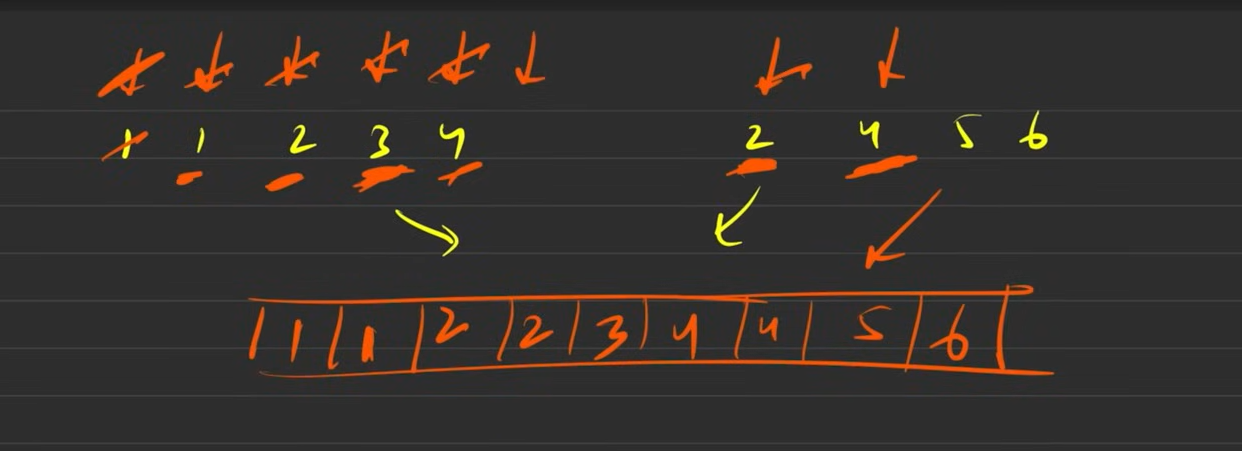 1 1 2 3 4 2 4 5 6
1 1 2 2 3 4 4 5 6